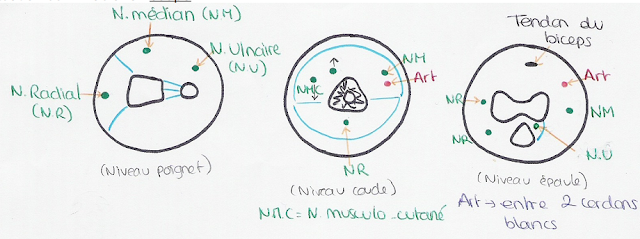 N. médian (N.M)
N. Ulnaire
(N.U)
N. Radial
(N.R)
(Niveau poignet)
NM
Art
NMC
NR
(Niveau coude)
NMC = N. musculo-cutané
Tendon du
biceps
Art
NR
NM
NR
N.U
(Niveau épaule)
Art → entre 2 cordons
blancs